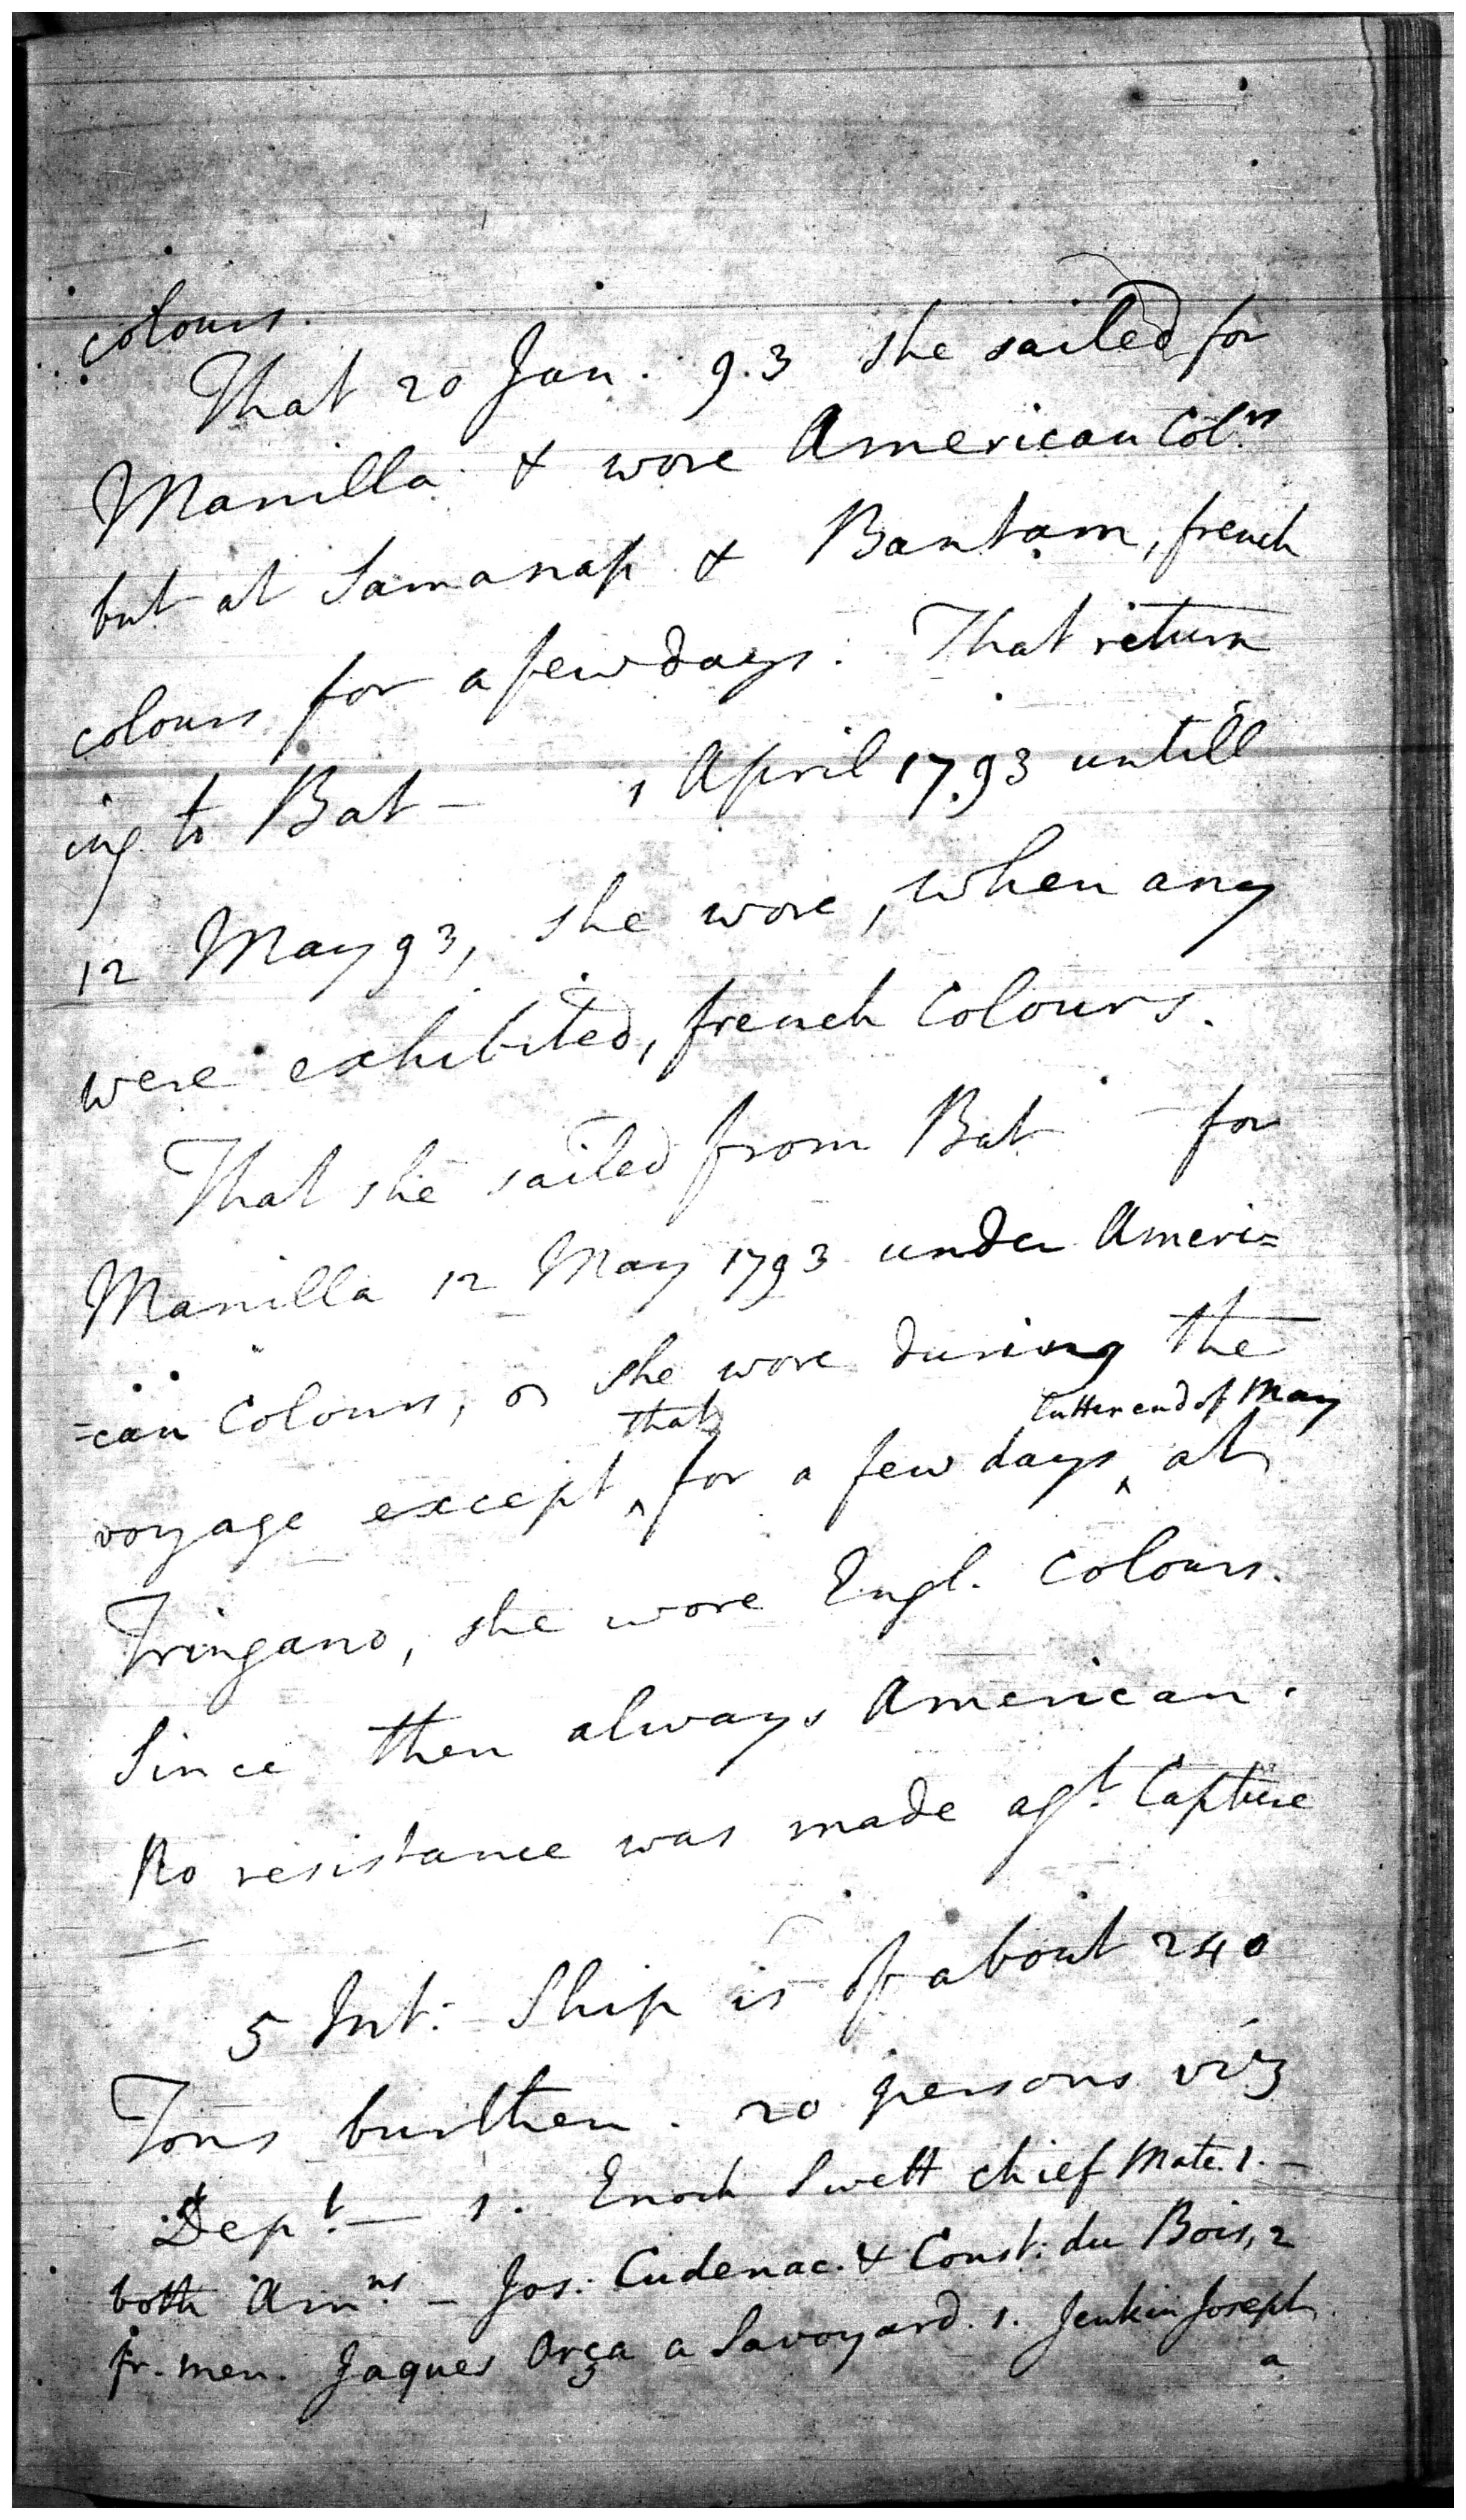 colours.
That 20 Jan. 93 she sailed for
Manilla & wore American Col.rs
but at Samanap & Bantam, french
colours for a few days. That return
ing to Bat - 1 April 1793 untill
12 May 93, she wore, when any
were exhibited, french Colours.
That she sailed from Bat - for
Manilla 12 May 1793 under Ameri=
=can Colours, & she wore during the
voyage except ^ that for a few days ^ latter end of May at
Tringano, she wore Engl. Colours.
Since then always American.
No resistance was made ag.t Capture
5 Int: Ship is of about 240
Tons burthen. 20 persons viz
Dep.t — 1. Enoch Swett chief Mate. 1. -
both Am.ns - Jos: Cudenac. & Const: du Bois, 2
fr. men. Jaques Orça a Savoyard. 1. Jenkin Joseph
a